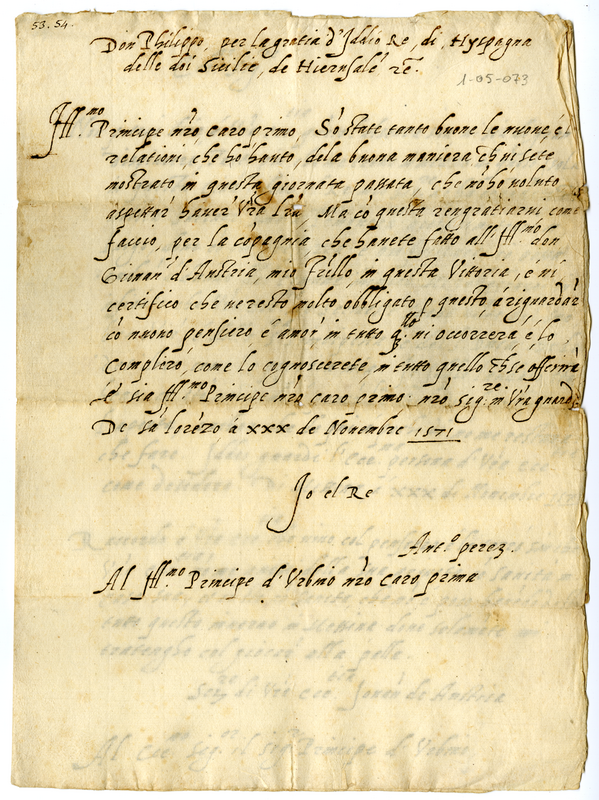 53. 54.
Don Philippo, per la gratia d'Iddio Re, di, Hyspagna
delle doi Sicilie, de Hierusale, re.
1-05-073
Ill.mo Principe nro caro primo, So state tanto buone le nuone, é l
relationi, che ho hauto, dela buona maniera, ch ui sete
mostrato in questa giornata passata, che nó hó noluto
aspettar hauer Vra lra, Ma có questa rengratiarui, come
faccio, per la cópagnia che hauete fatto all' Ill.mo don
Giouan' d'Austria, mio frillo, in questa Vitoria, é ui
certifico che ne resto molto obbligato p questo, á riguardar
có nuouo pensiero é amor in tutto q.llo ui occorrerá é lo
Complero, come lo cognoscerete, in tutto quello ch se offerirá
é sia Ill.mo Principe nro caro primo nro sig.re in Vra guardi
De sá lorézo á xxx de Nouembre 1571
Jo el Re
Ant.o perez.
Al Ill.mo Principe d'Vrbino nro caro primo